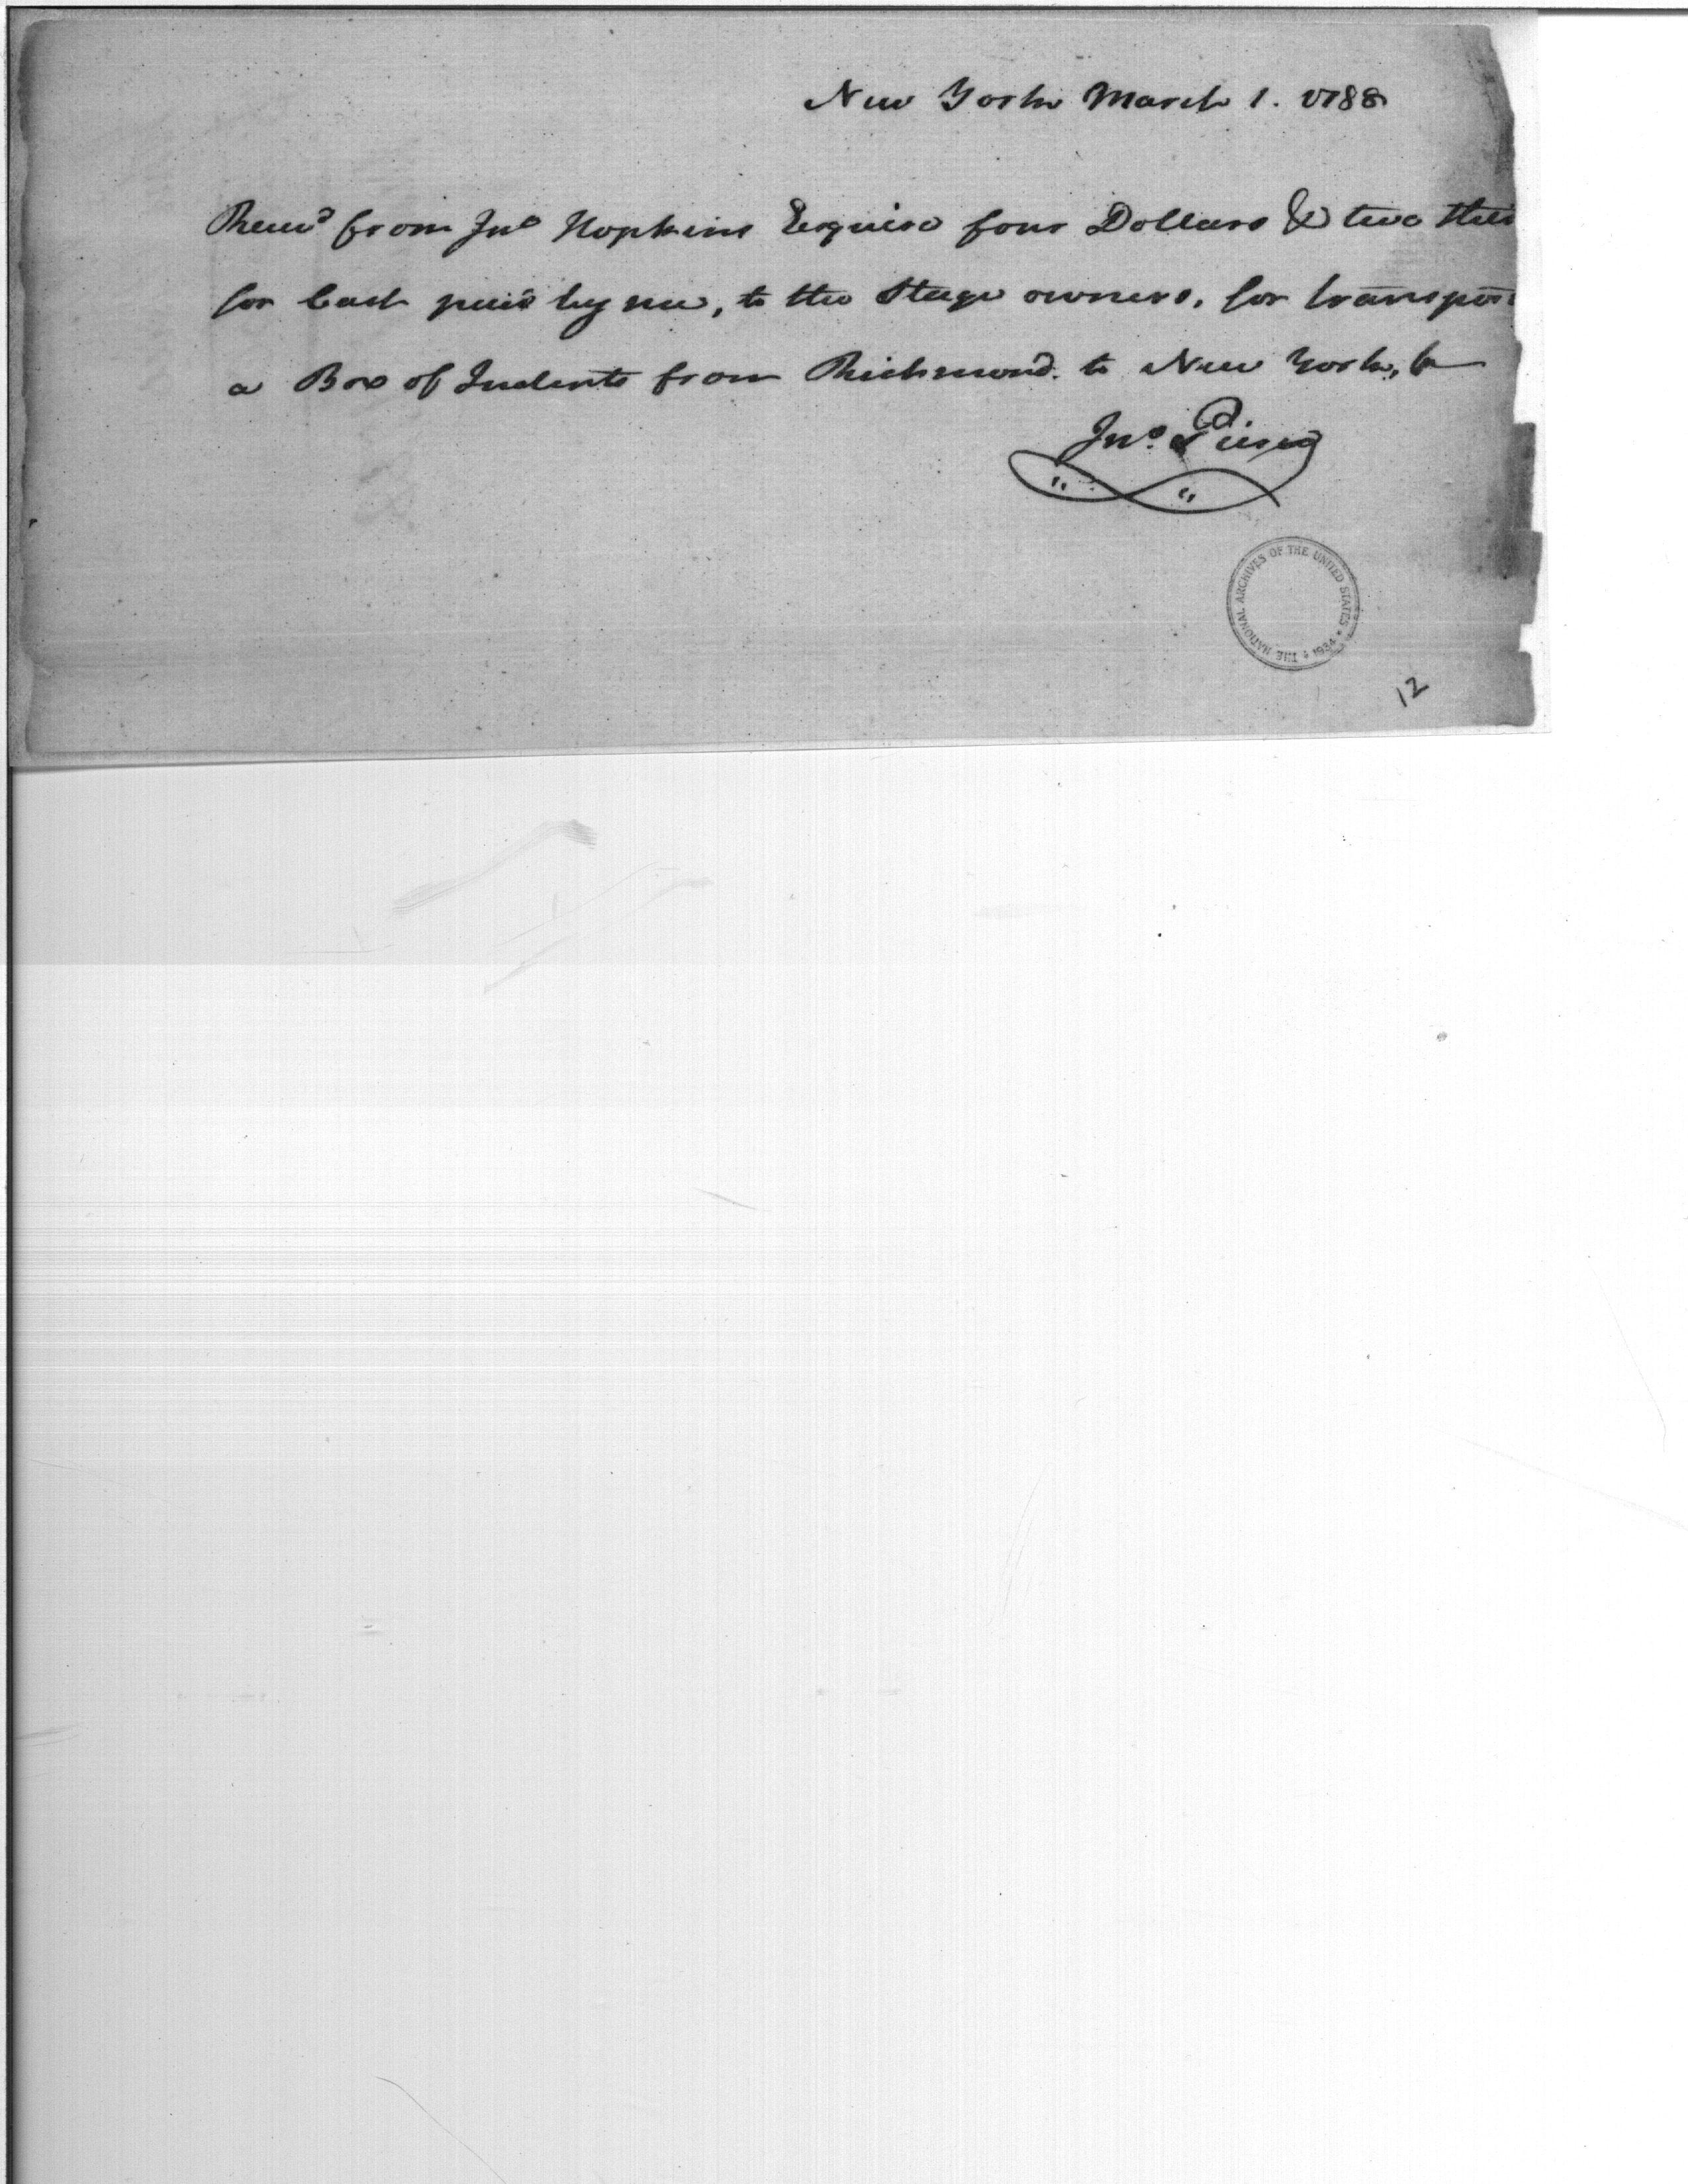 New York March 1. 1788
Recev'd from Jn° Hopkins Esquire four Dollars & two thir
for Cash paid by me, to the Stage owners, for transpor
a Box of Indents from Richmond. to New York, &
Jn°. Pierce
THE NATIONAL ARCHIVES OF THE UNITED STATES * 1934 *
12